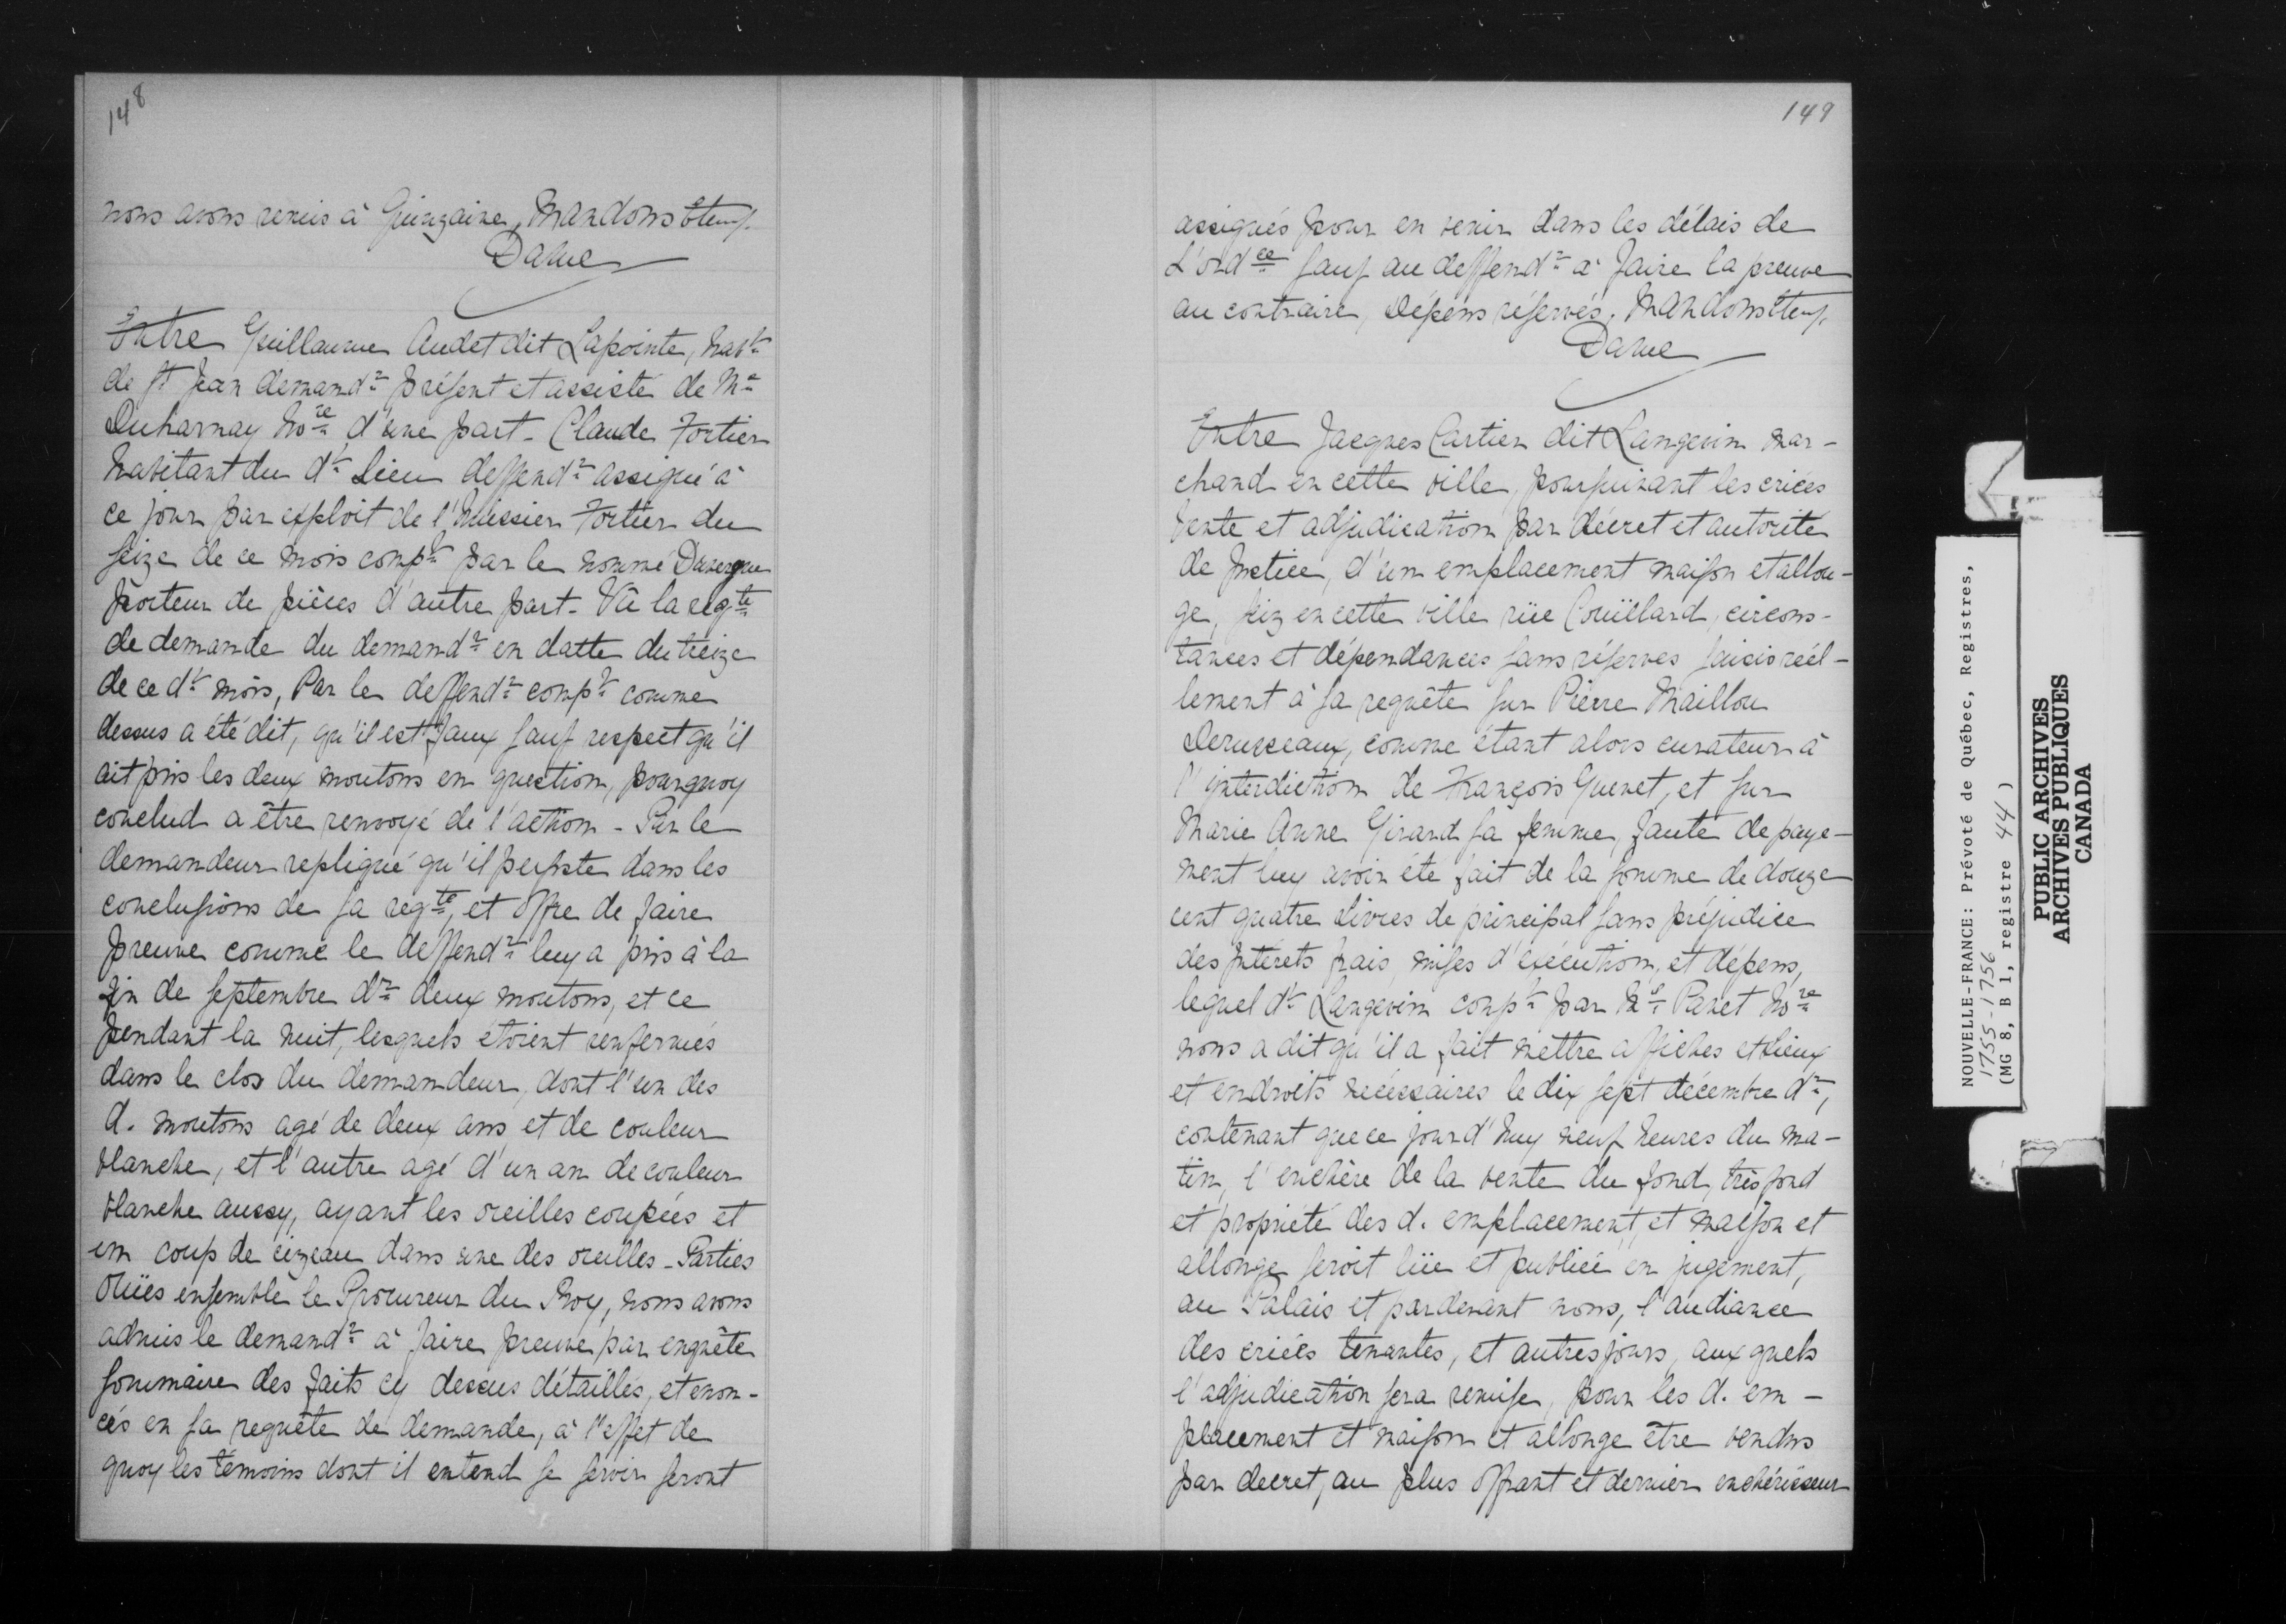 148
nous avons remis à Quinzaine, Mandons &tenf.
Daine
Entre Guillaume Audet dit Lapointe, habt
de St Jean demandr présent et assisté de Me
Duharnay Nore d'une part - Claude Fortier
habitant du dt Lieu deffendr assigné à
ce jour par exploit de l'huissier Fortier du
seize de ce mois compt par le nommé Davergne
porteur de pièces d'autre part - Vû la reqte
de demande du demandr en datte du treize
de ce dt mois, Par le deffendr compt comme
dessus a été dit, qu'il est faux sauf respect qu'il
ait pris les deux moutons en question, pourquoy
conclud a être renvoyé de l'action - Par le
demandeur repliqué qu'il persiste dans les
conclusions de sa reqte, et offre de faire
preuve comme le deffendr luy a pris à la
fin de septembre dr deux moutons, et ce
pendant la nuit, lesquels étoient renfermés
dans le clos du demandeur, dont l'un des
d. moutons agé de deux ans et de couleur
blanche, et l'autre agé d'un an de couleur
blanche aussy, ayant les oreilles coupées et
un coup de cizeau dans une des oreilles - Parties
Oüies ensemble le Procureur du Roy, nous avons
admis le demandr à faire preuve par enquête
sommaire des faits cy dessus détaillés, et enon-
cés en sa requête de demande, à l'effet de
quoy les témoins dont il entend se servir seront
149
assignés pour en venir dans les délais de
L'ordce sauf au deffendr à faire la preuve
au contraire, Dépens réservés, Mandons &tenf.
Daine
Entre Jacques Cartier dit Langevin mar-
chand en cette ville, poursuivant les criées
vente et adjudication par décret et autorité
de Justice, d'un emplacement maison et allon-
ge, siz en cette ville rüe Coüillard, circons-
tances et dépendances sans réserves saisis réél-
lement à sa requête sur Pierre Maillou
Derusseaux, comme étant alors curateur à
l'interdiction de François Guenet, et sur
Marie Anne Girard sa femme, faute de paye-
ment luy avoir été fait de la somme de douze
cent quatre Livres de principal sans préjudice
des Intérets frais mises d'exécution, et dépens,
lequel dt Langevin compt par Me Panet Nore
nous a dit qu'il a fait mettre affiches et lieux
et endroits nécessaires le dix sept décembre dr,
contenant que ce jourd'huy neuf heures du ma-
tin, l'enchère de la vente du fond, très fond
et propriété des d. emplacement, et maison et
allonge seroit lüe et publiée en jugement,
au Palais et pardevant nous, l'audiance
des criées tenantes, et autres jours, aux quels
l'adjudication sera remise, pour les d. em-
placement et maison et allonge être vendus
par decret, au plus offrant et dernier enchérisseur
NOUVELLE-FRANCE: Prévoté de Québec, Registres,
1755-1756
(MG 8, B 1, registre 44)
PUBLIC ARCHIVES
ARCHIVES PUBLIQUES
CANADA